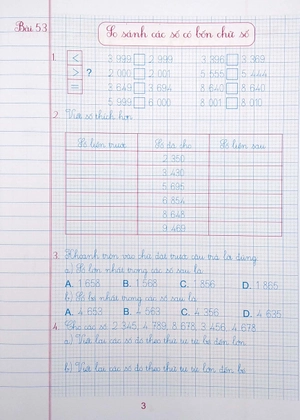 Bài 53 So sánh các số có bốn chữ số
1. < 3 999 □ 2 999 3 396 □ 3 369
> ? 2 000 □ 2 001 5 555 □ 5 444
= 3 649 □ 3 694 8 640 □ 8 640
5 999 □ 6 000 8 001 □ 8 010
2. Viết số thích hợp
Số liền trước Số đã cho Số liền sau
2 350
3 430
5 695
6 854
8 648
9 469
3. Khoanh tròn vào chữ đặt trước câu trả lời đúng
a) Số lớn nhất trong các số sau là
A. 1 658 B. 1 568 C. 1 856 D. 1 865
b) Số bé nhất trong các số sau là
A. 4 653 B. 4 563 C. 4 356 D. 4 635
4. Cho các số 2 345, 4 789, 8 678, 3 456, 4 678
a) Viết lại các số đó theo thứ tự từ bé đến lớn
b) Viết lại các số đó theo thứ tự từ lớn đến bé
3